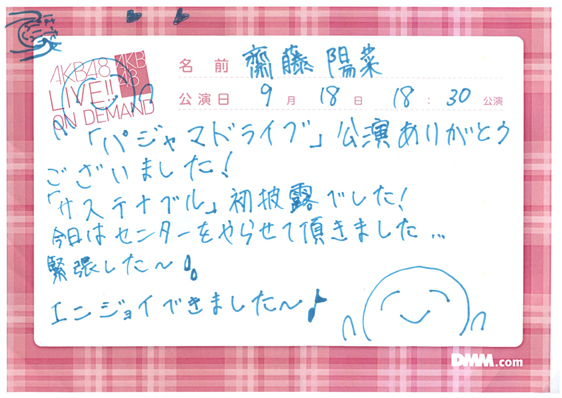 AKB48
LIVE!!
ON DEMAND
AKB
48
名前 齋藤陽菜
公演日 9月18日 18:30公演
「パジャマドライブ」公演ありがとう
ございました!
「サステナブル」初披露でした!
今日はセンターをやらせて頂きました…
緊張した〜
エンジョイできました〜♪
DMM.com